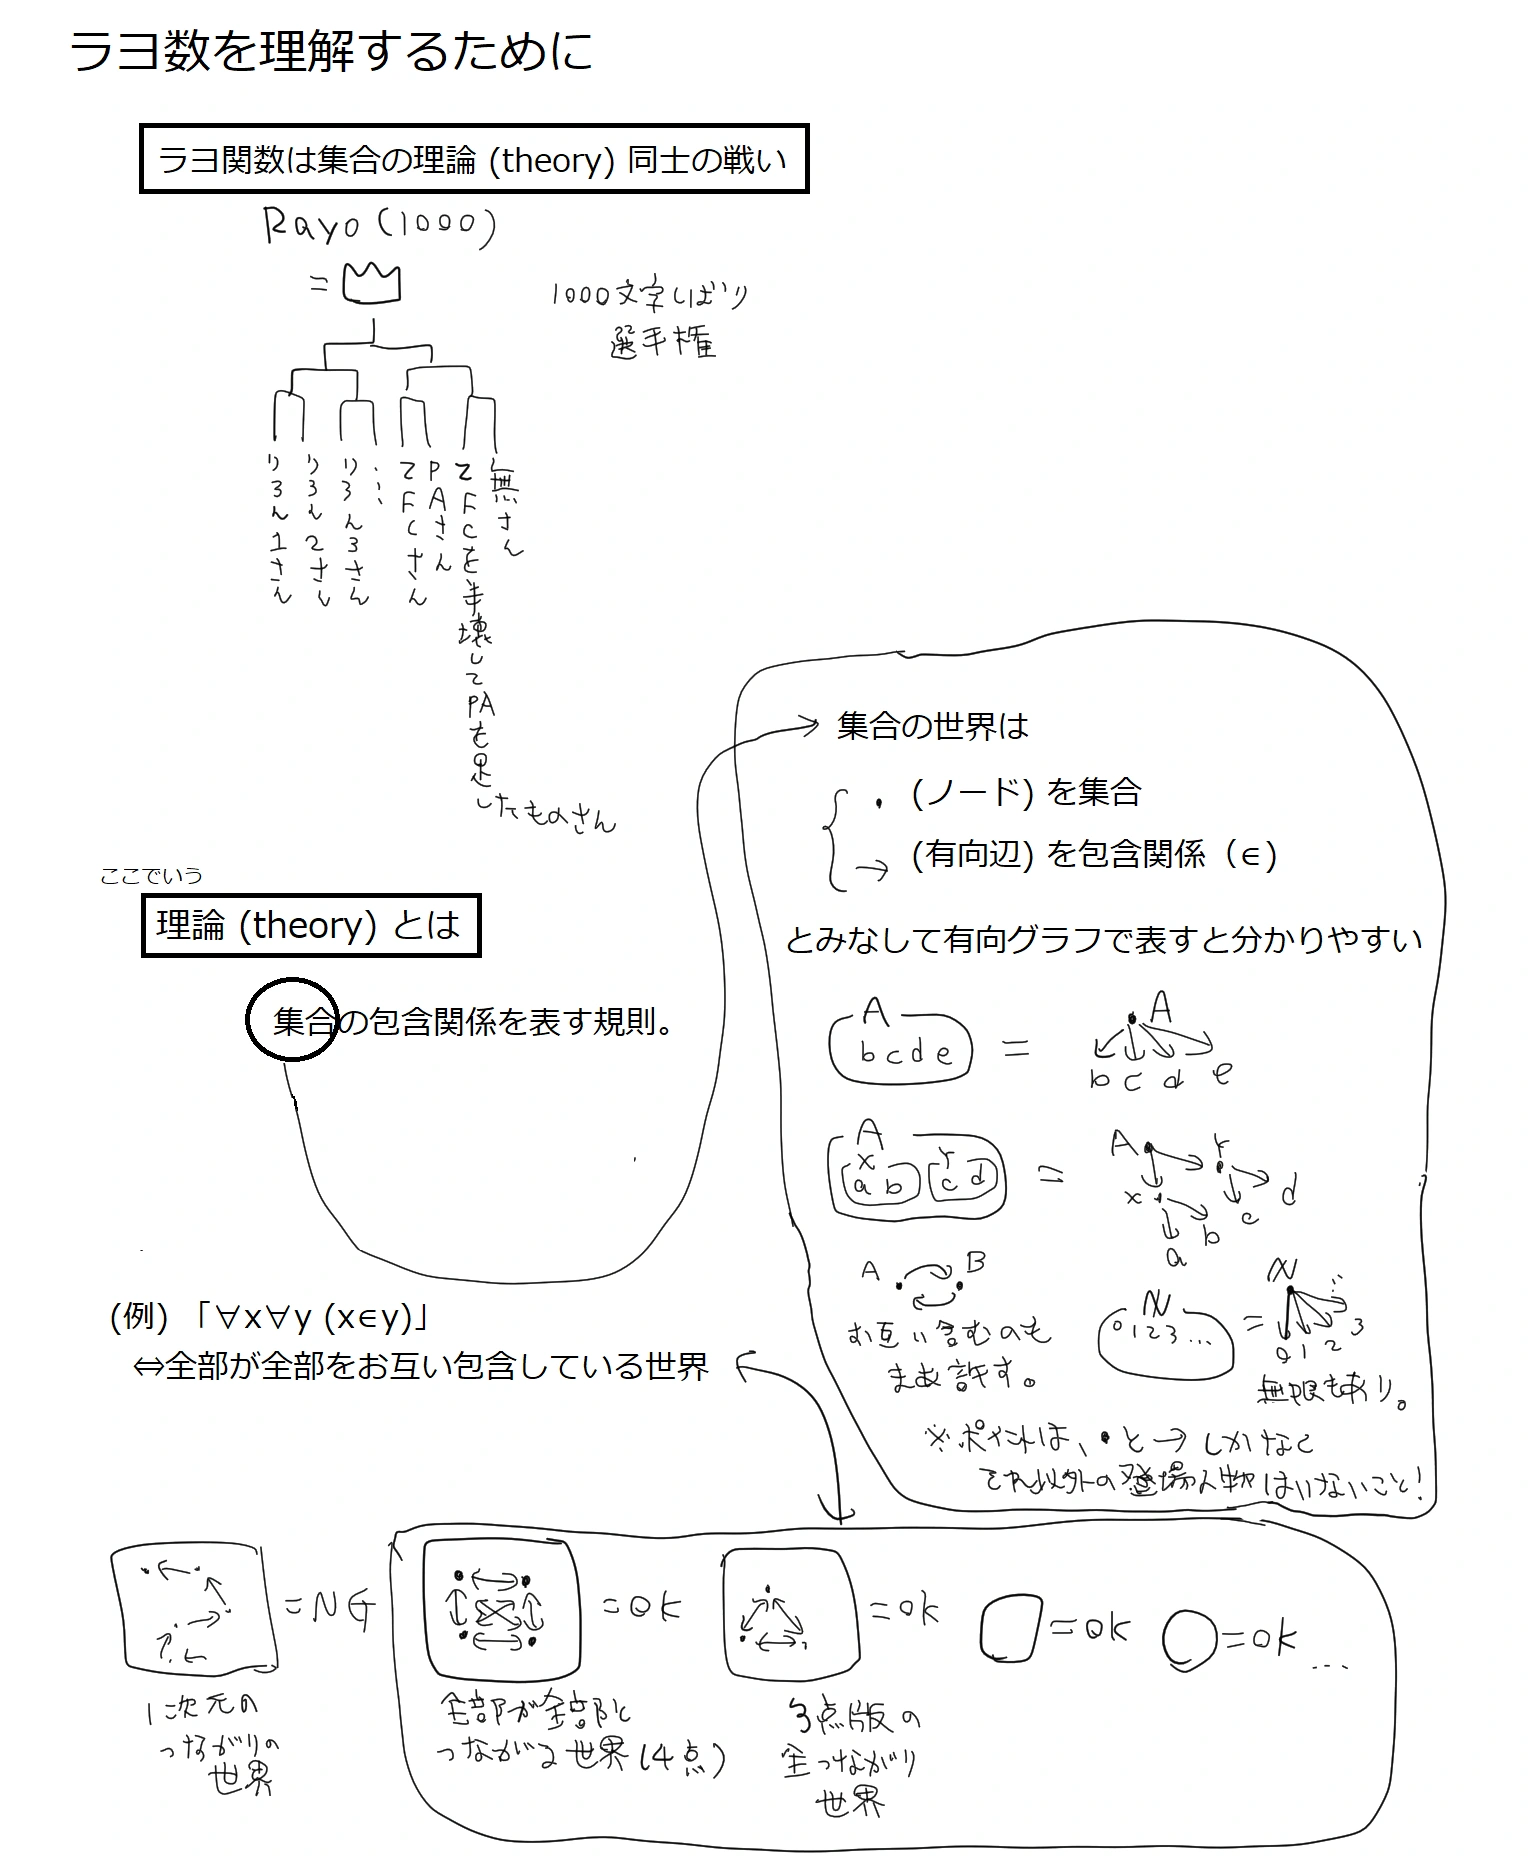 ラヨ数を理解するために
ラヨ関数は集合の理論 (theory) 同士の戦い
Rayo(1000)
=
1000文字しばり
選手権
りろん1さん
りろん2さん
りろん3さん
…
ZFCさん
PAさん
ZFCを半壊してPAを足したものさん
無さん
ここでいう
理論 (theory) とは
集合の包含関係を表す規則。
集合の世界は
・ (ノード) を集合
→ (有向辺) を包含関係（∈)
とみなして有向グラフで表すと分かりやすい
A
b c d e
=
A
b c d e
A
x
a b
Y
c d
=
A
Y
x
d
c
b
a
A B
お互い含むのも
まあ許す。
N
0 1 2 3 …
=
N
…
0 1 2 3
無限もあり。
※ポイントは、・と→しかなく
それ以外の登場人物はいないこと!
(例) 「∀x∀y (x∈y)」
⇔全部が全部をお互い包含している世界
=NG
=OK
=OK
=OK
=OK
…
1次元の
つながりの
世界
全部が全部と
つながる世界(4点)
3点版の
全つながり
世界